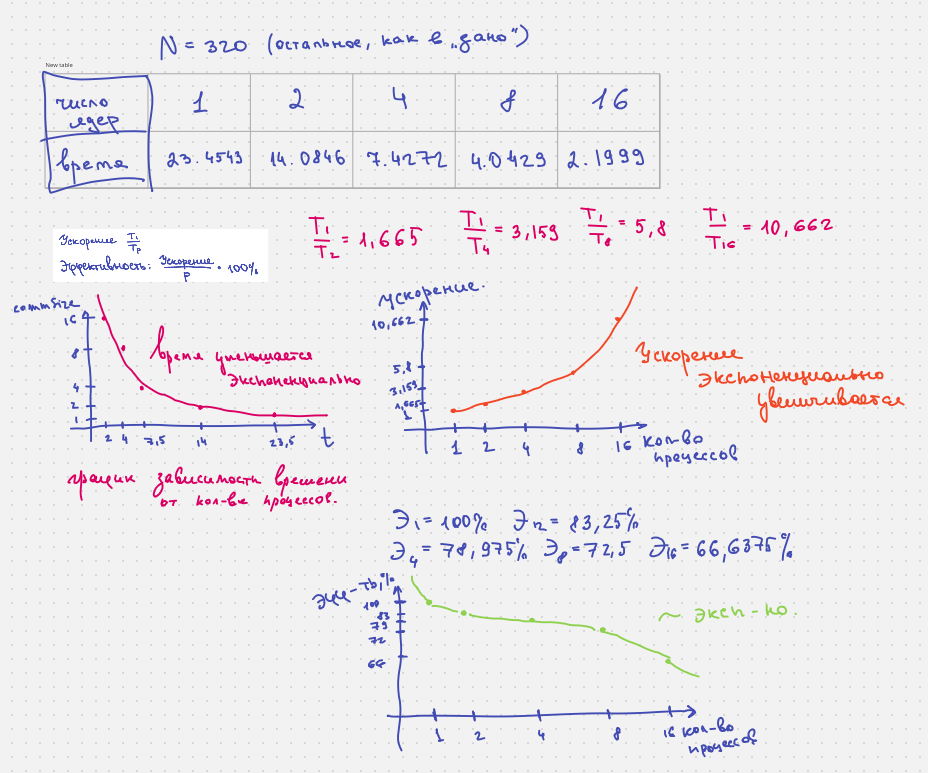 N = 320 (остальное, как в „дано")
New table
число ядер 1 2 4 8 16
время 23.4543 14.0846 7.4272 4.0429 2.1999
Ускорение T1/Tp
Эффективность: Ускорение/p • 100%
T1/T2 = 1,665 T1/T4 = 3,159 T1/T8 = 5,8 T1/T16 = 10,662
commSize
16
8
4
2
1
2 4 7,5 14 23,5 t
время уменьшается
экспоненциально
график зависимости времени
от кол-ва процессов.
Ускорение.
10,662
5,8
3,159
1,665
1
1 2 4 8 16 кол-во
процессов
Ускорение
экспоненциально
увеличивается
Э1 = 100% Э2 = 83,25%
Э4 = 78,975% Э8 = 72,5 Э16 = 66,6375%
Эфф-ть,%
100
83
79
72
66
~ эксп-но.
1 2 4 8 16 кол-во
процессов